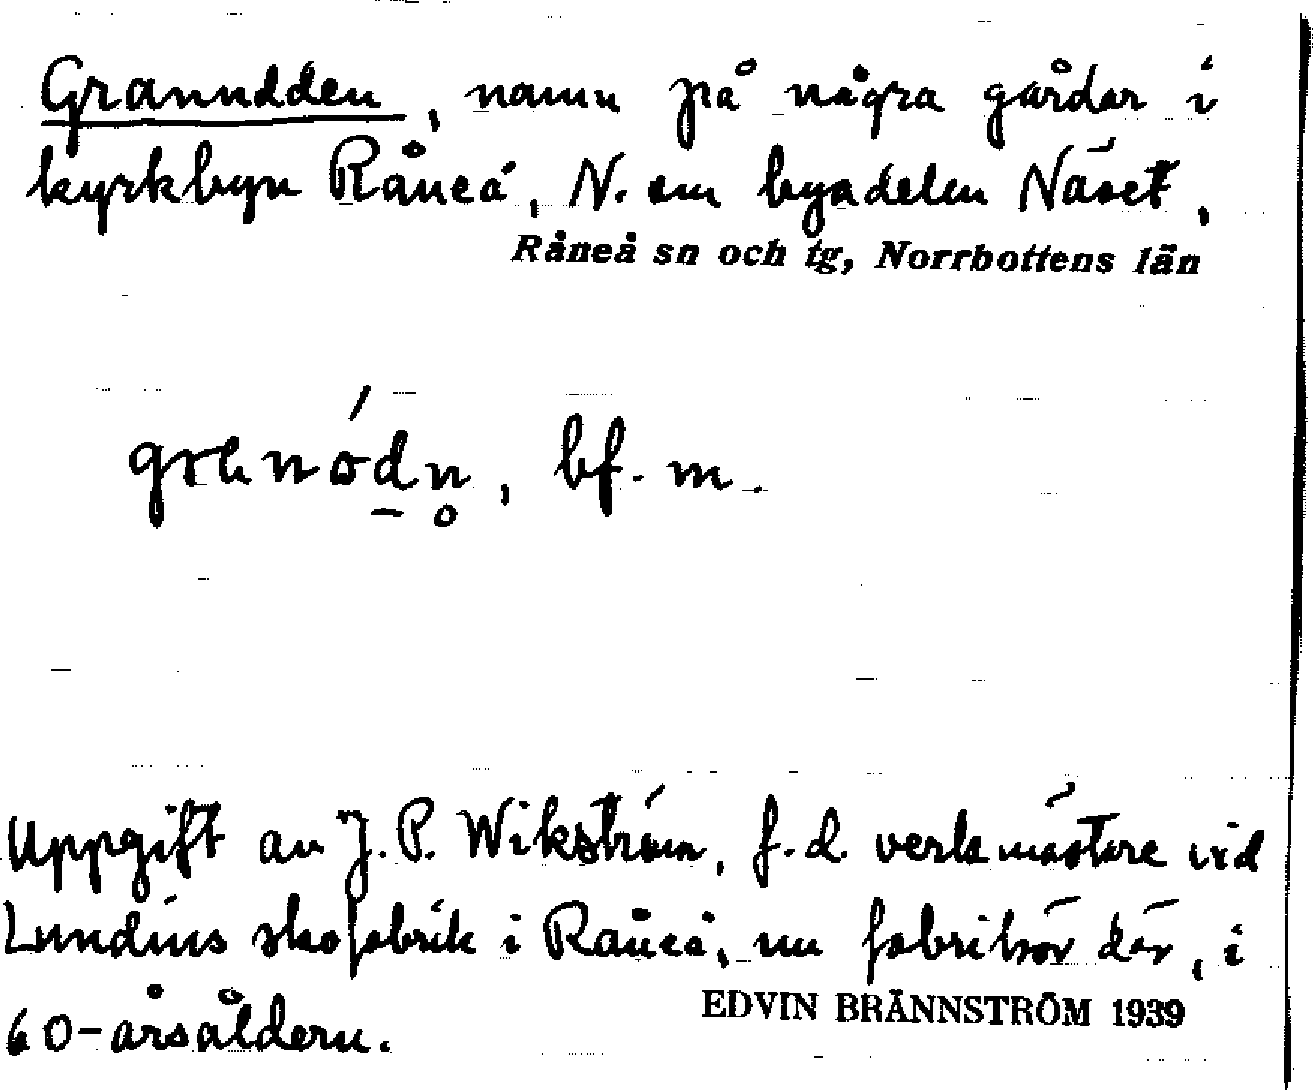 Grannudden, namn på några gårdar i
kyrkbyn Råneå, N. om byadelen Näset,
Råneå sn och tg, Norrbottens län
bf. m.
Uppgift av J. P. Wikström, f. d. verkmästare vid
Lundins skofabrik i Råneå, nu fabrikör där, i
60-årsåldern.
EDVIN BRÄNNSTRÖM 1939